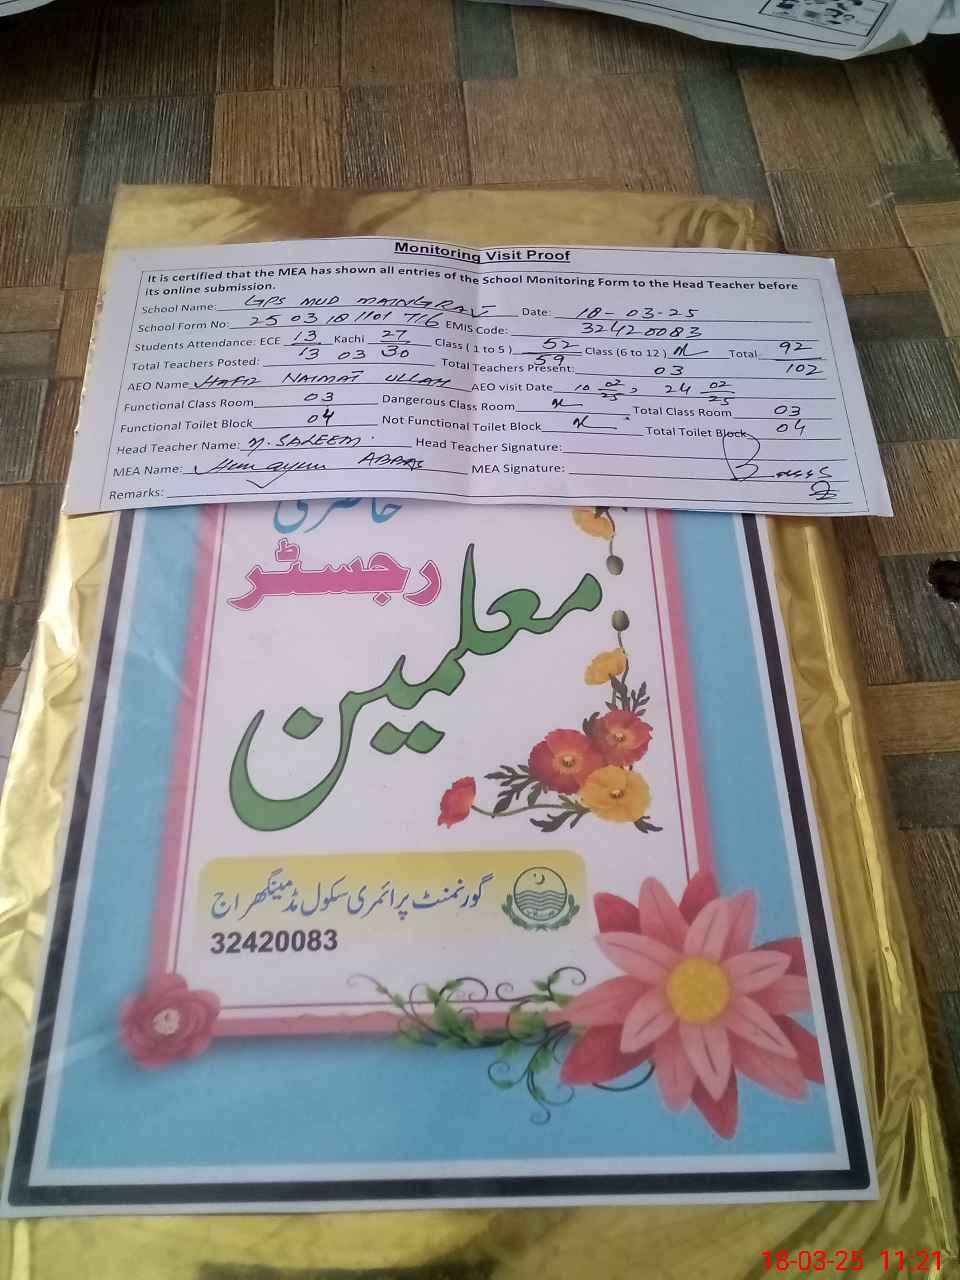 Monitoring Visit Proof
It is certified that the MEA has shown all entries of the School Monitoring Form to the Head Teacher before
its online submission.
School Name: GPS MUD MAINGRAJ Date: 18-03-25
School Form No: 25 03 18 1101 716 EMIS Code: 32420083
Students Attendance: ECE 13/13 Kachi 27/30 Class ( 1 to 5 ) 52/59 Class (6 to 12 ) Total 92/102
Total Teachers Posted: 03 Total Teachers Present: 03
AEO Name Hafiz NAIMAT ULLAH AEO visit Date 10 02/25, 24 02/25
Functional Class Room 03 Dangerous Class Room Total Class Room 03
Functional Toilet Block 04 Not Functional Toilet Block Total Toilet Block 04
Head Teacher Name: M. SALEEM. Head Teacher Signature:
MEA Name: Humayun ABBAS MEA Signature:
Remarks:
حاضری
رجسٹر
معلمین
گورنمنٹ پرائمری سکول مڈ مینگھراج
32420083
18-03-25 11:21